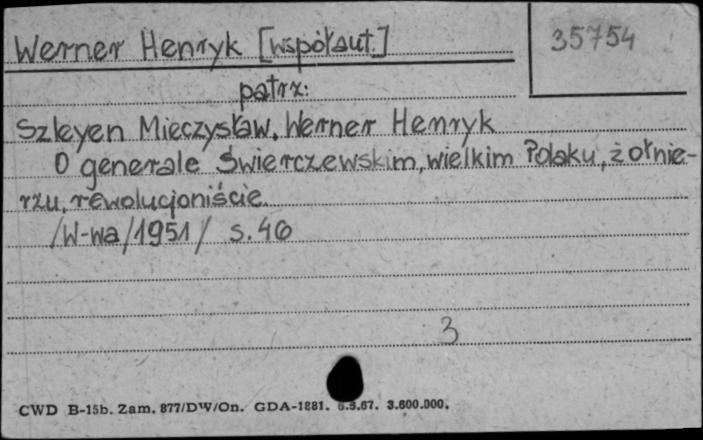 Werner Henryk [współaut.]
35754
patrz:
Szleyen Mieczysław, Werner Henryk
O generale Świerczewskim, wielkim Polaku, żołnie-
rzu, rewolucjoniście.
/W-wa/1951/ s. 46
3
CWD B-15b. Zam. 877/DW/On. GDA-1881. 6.3.67. 3.600.000.